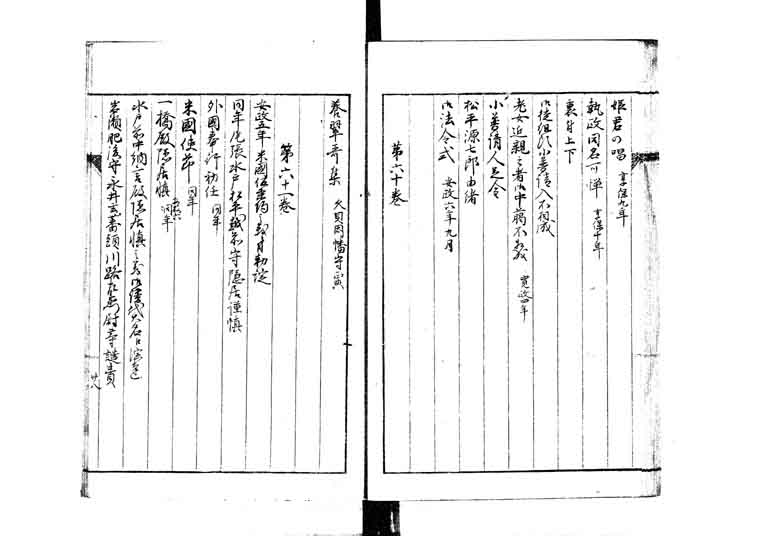 姫君の唱 享保九年
執政同名可憚 享保十年
裏付上下
御徒組ゟ小普請入不相成
老女近親之者御中﨟不相成 寛政四年
小普請人足令
松平源七郎由緒
御法令式 安政六年九月
第六十巻
養翠亭集 久貝因幡守寅
第六十一巻
安政五年米國仮条約ニ付勅諚
同年尾張水戸松平越前守隠居謹慎
外國奉行初任 同年
米國使節 同年
一橋殿隠居慎 安政六 同年
水戸前中納言殿隠居慎之義御譜代大名江演達
岩瀬肥後守永井玄蕃頭川路左衛門尉等譴責
廿八